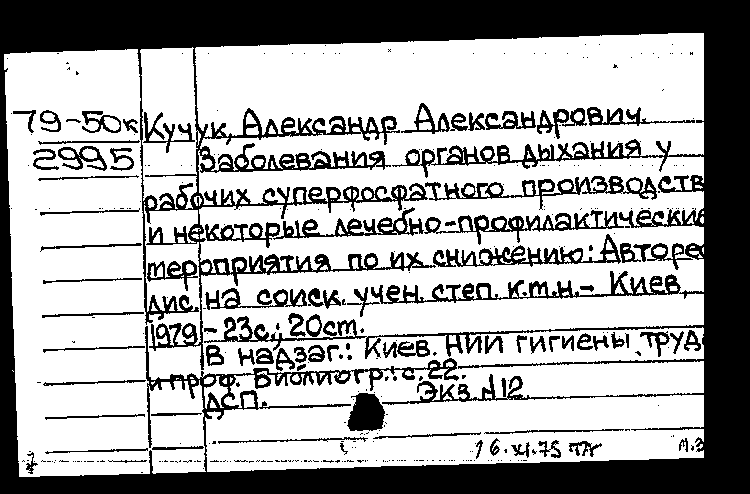 79-50к Кучук, Александр Александрович.
2995 Заболевания органов дыхания у
рабочих суперфосфатного производств
и некоторые лечебно-профилактические
мероприятия по их снижению: Авторес
дис. на соиск. учен. степ. к.т.н.- Киев,
1979.-23с.; 20ст.
В надзаг.: Киев. НИИ гигиены труд
и проф. Библиогр.: с. 22.
ДСП. Экз. N12